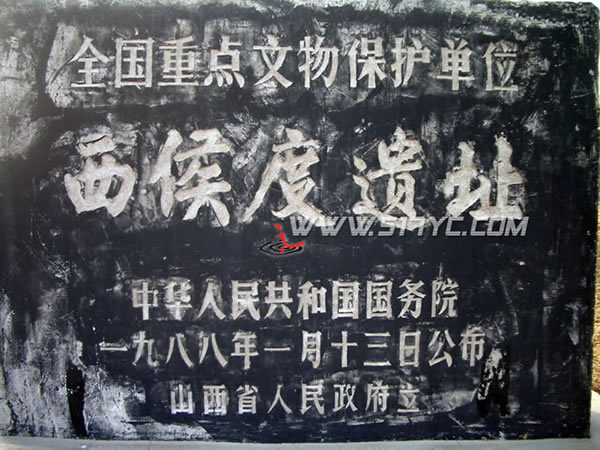 全国重点文物保护单位
西侯度遗址
WWW.SXYC.COM
中华人民共和国国务院
一九八八年一月十三日公布
山西省人民政府立